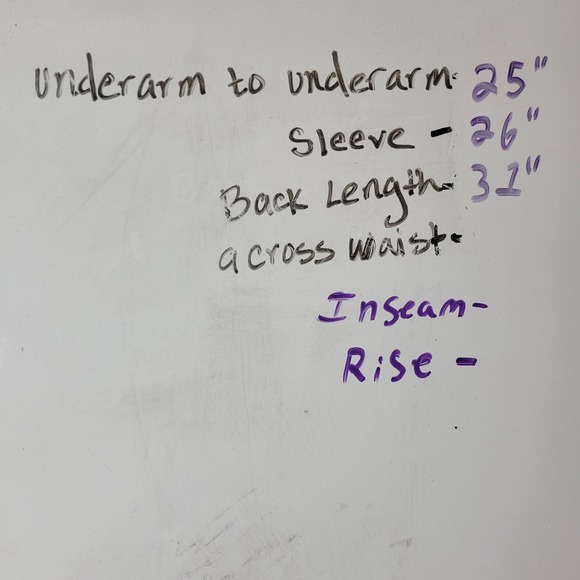 underarm to underarm- 25"
Sleeve - 26"
Back Length- 31"
across waist-
Inseam-
Rise -